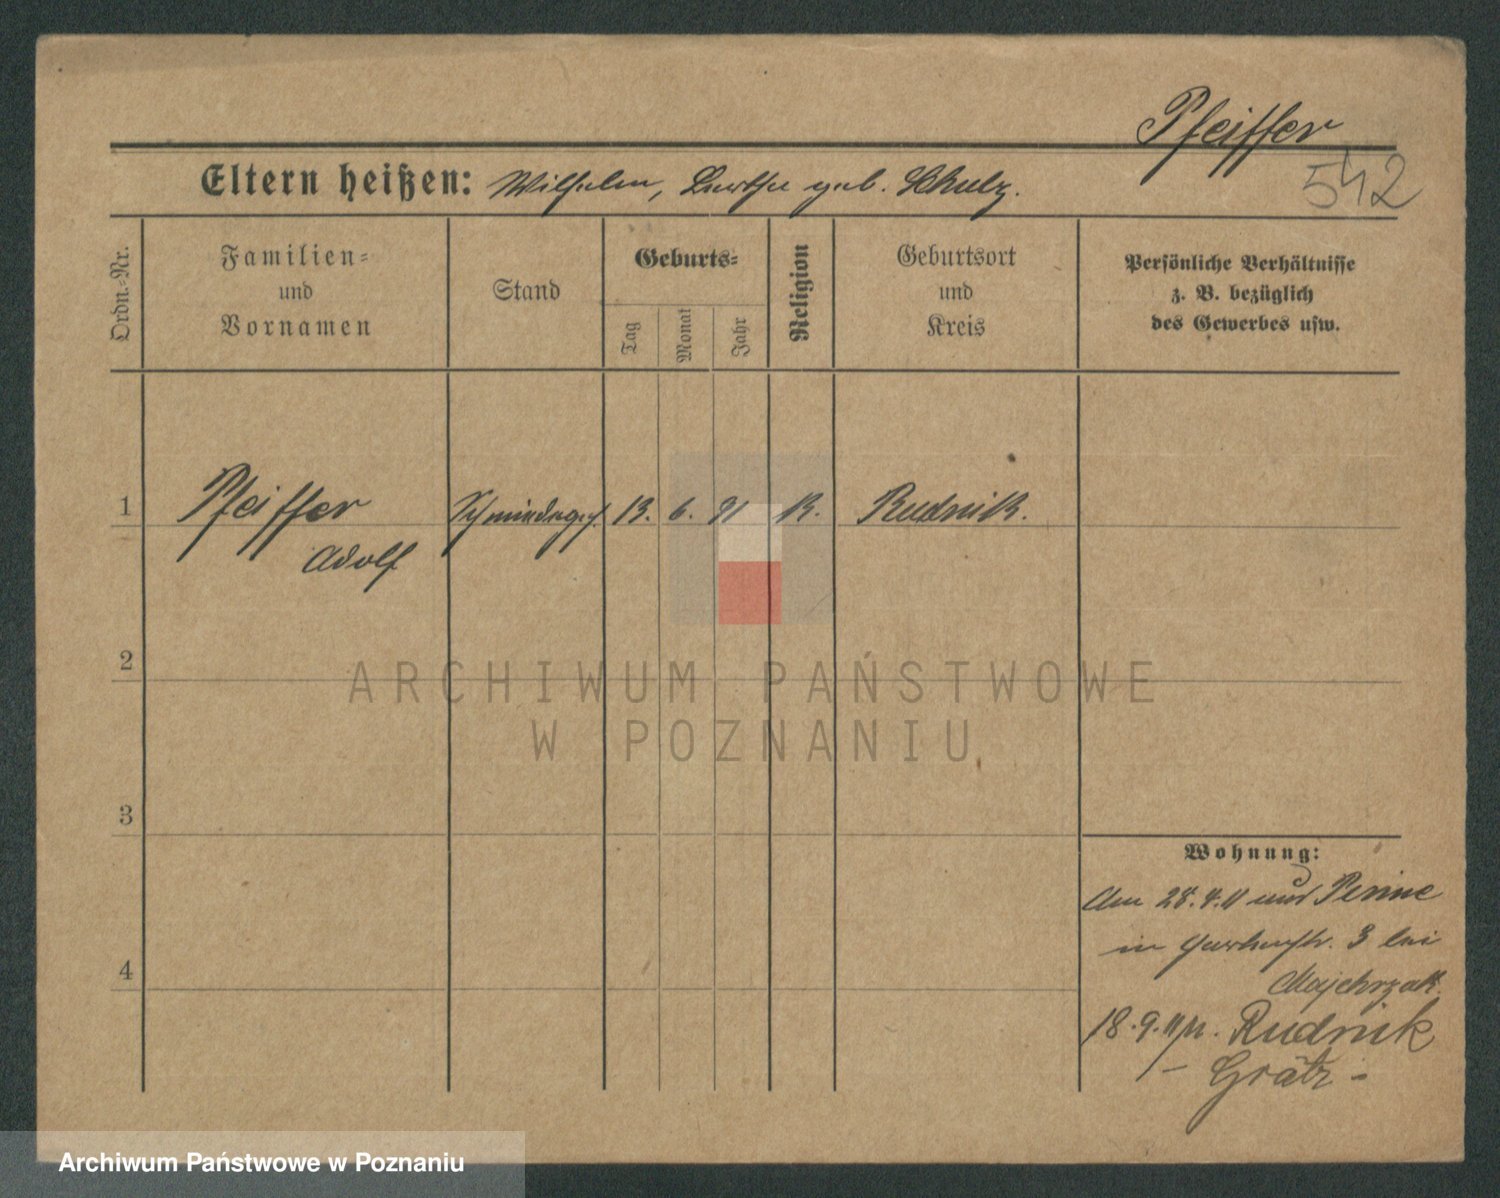 Pfeiffer
542
Eltern heißen: Wilhelm, geb. Schulz.
Ordn.-Nr.
Familien-
und
Vornamen
Stand
Geburts-
Tag
Monat
Jahr
Religion
Geburtsort
und
Kreis
Persönliche Verhältnisse
z. B. bezüglich
des Gewerbes usw.
1
Pfeiffer
Adolf
Schmiedeges.
13. 6. 91
K.
Rudnik.
2
3
4
Wohnung:
Am 28. 4. 11 aus Penne
in Gartenstr. 3 bei
Majchrzak.
18.9.11 Rudnik
- Grätz -
ARCHIWUM PAŃSTWOWE
W POZNANIU
Archiwum Państwowe w Poznaniu